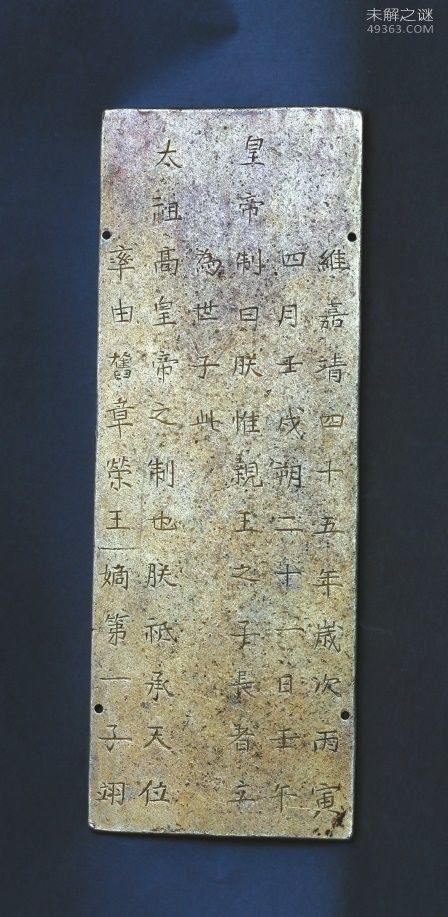 維嘉靖四十五年歲次丙寅
四月壬戌朔二十一日壬午
皇帝制曰朕惟親王之子長者立
為世子此
太祖高皇帝之制也朕祗承天位
率由舊章榮王嫡第一子翊
未解之谜
49363.COM